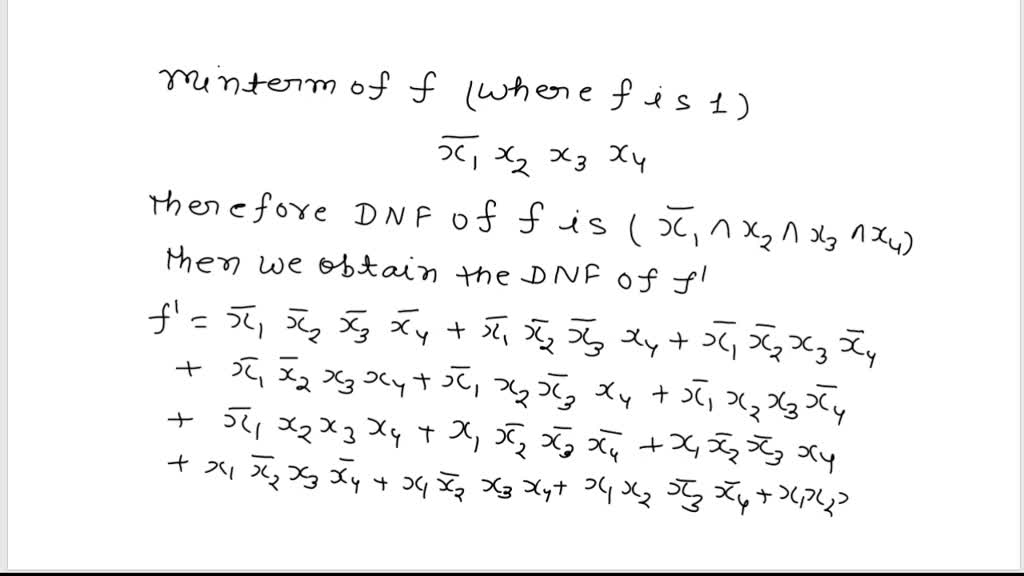 minterm of f (where f is 1)
x̄₁ x₂ x₃ x₄
therefore DNF of f is ( x̄₁ ∧ x₂ ∧ x₃ ∧ x₄)
then we obtain the DNF of f'
f' = x̄₁ x̄₂ x̄₃ x̄₄ + x̄₁ x̄₂ x̄₃ x₄ + x̄₁ x̄₂ x₃ x̄₄
+ x̄₁ x̄₂ x₃ x₄ + x̄₁ x₂ x̄₃ x₄ + x̄₁ x₂ x₃ x̄₄
+ x̄₁ x₂ x₃ x₄ + x₁ x̄₂ x̄₃ x̄₄ + x₁ x̄₂ x̄₃ x₄
+ x₁ x̄₂ x₃ x̄₄ + x₁ x̄₂ x₃ x₄ + x₁ x₂ x̄₃ x̄₄ + x₁ x₂